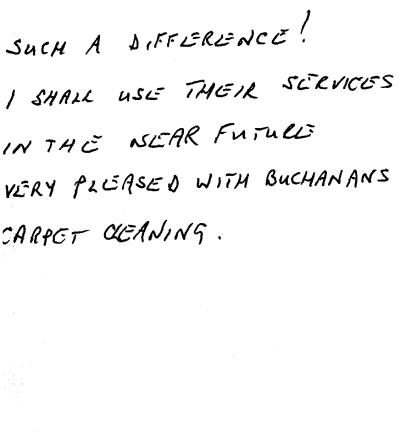 SUCH A DIFFERENCE!
I SHALL USE THEIR SERVICES
IN THE NEAR FUTURE
VERY PLEASED WITH BUCHANANS
CARPET CLEANING.